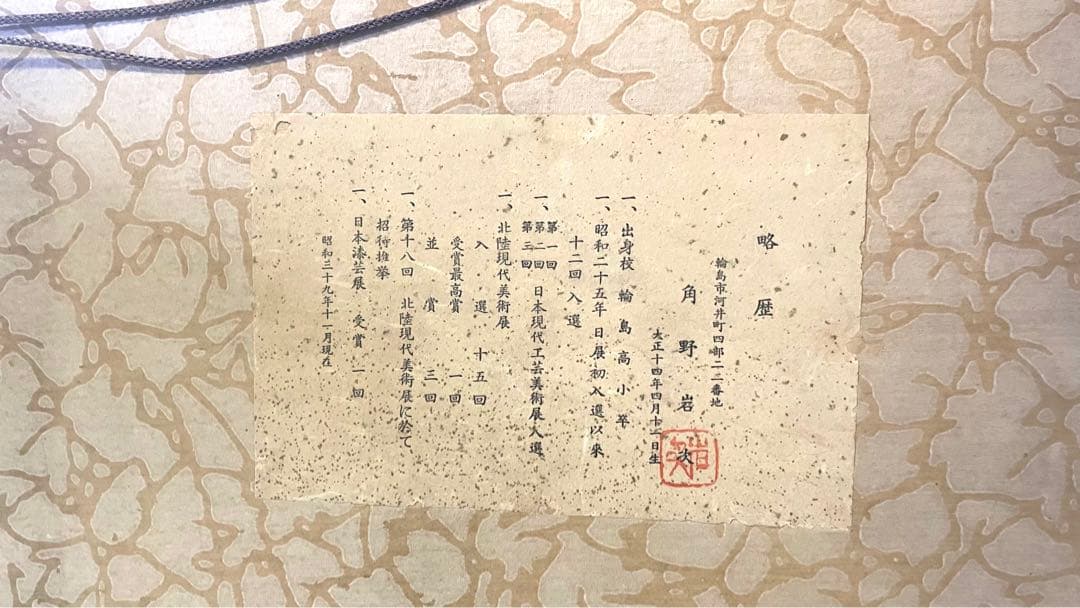 略歴
輪島市河井町四部二二番地
角野岩次
大正十四年四月十一日生
一、出身校 輪島高小卒
一、昭和二十五年 日展初入選以来
十二回入選
一、第一回 第二回 第三回 日本現代工芸美術展入選
一、北陸現代美術展
入選 十五回
受賞最高賞 一回
並賞 三回
一、第十八回 北陸現代美術展に於て
招待推挙
一、日本漆芸展 受賞 一回
昭和三十九年十一月現在